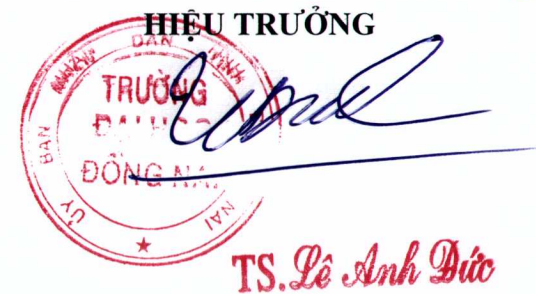 HIỆU TRƯỞNG
ỦY BAN NHÂN DÂN TỈNH
TRƯỜNG
ĐẠI HỌC
ĐỒNG NAI
NAI
TS. Lê Anh Đức